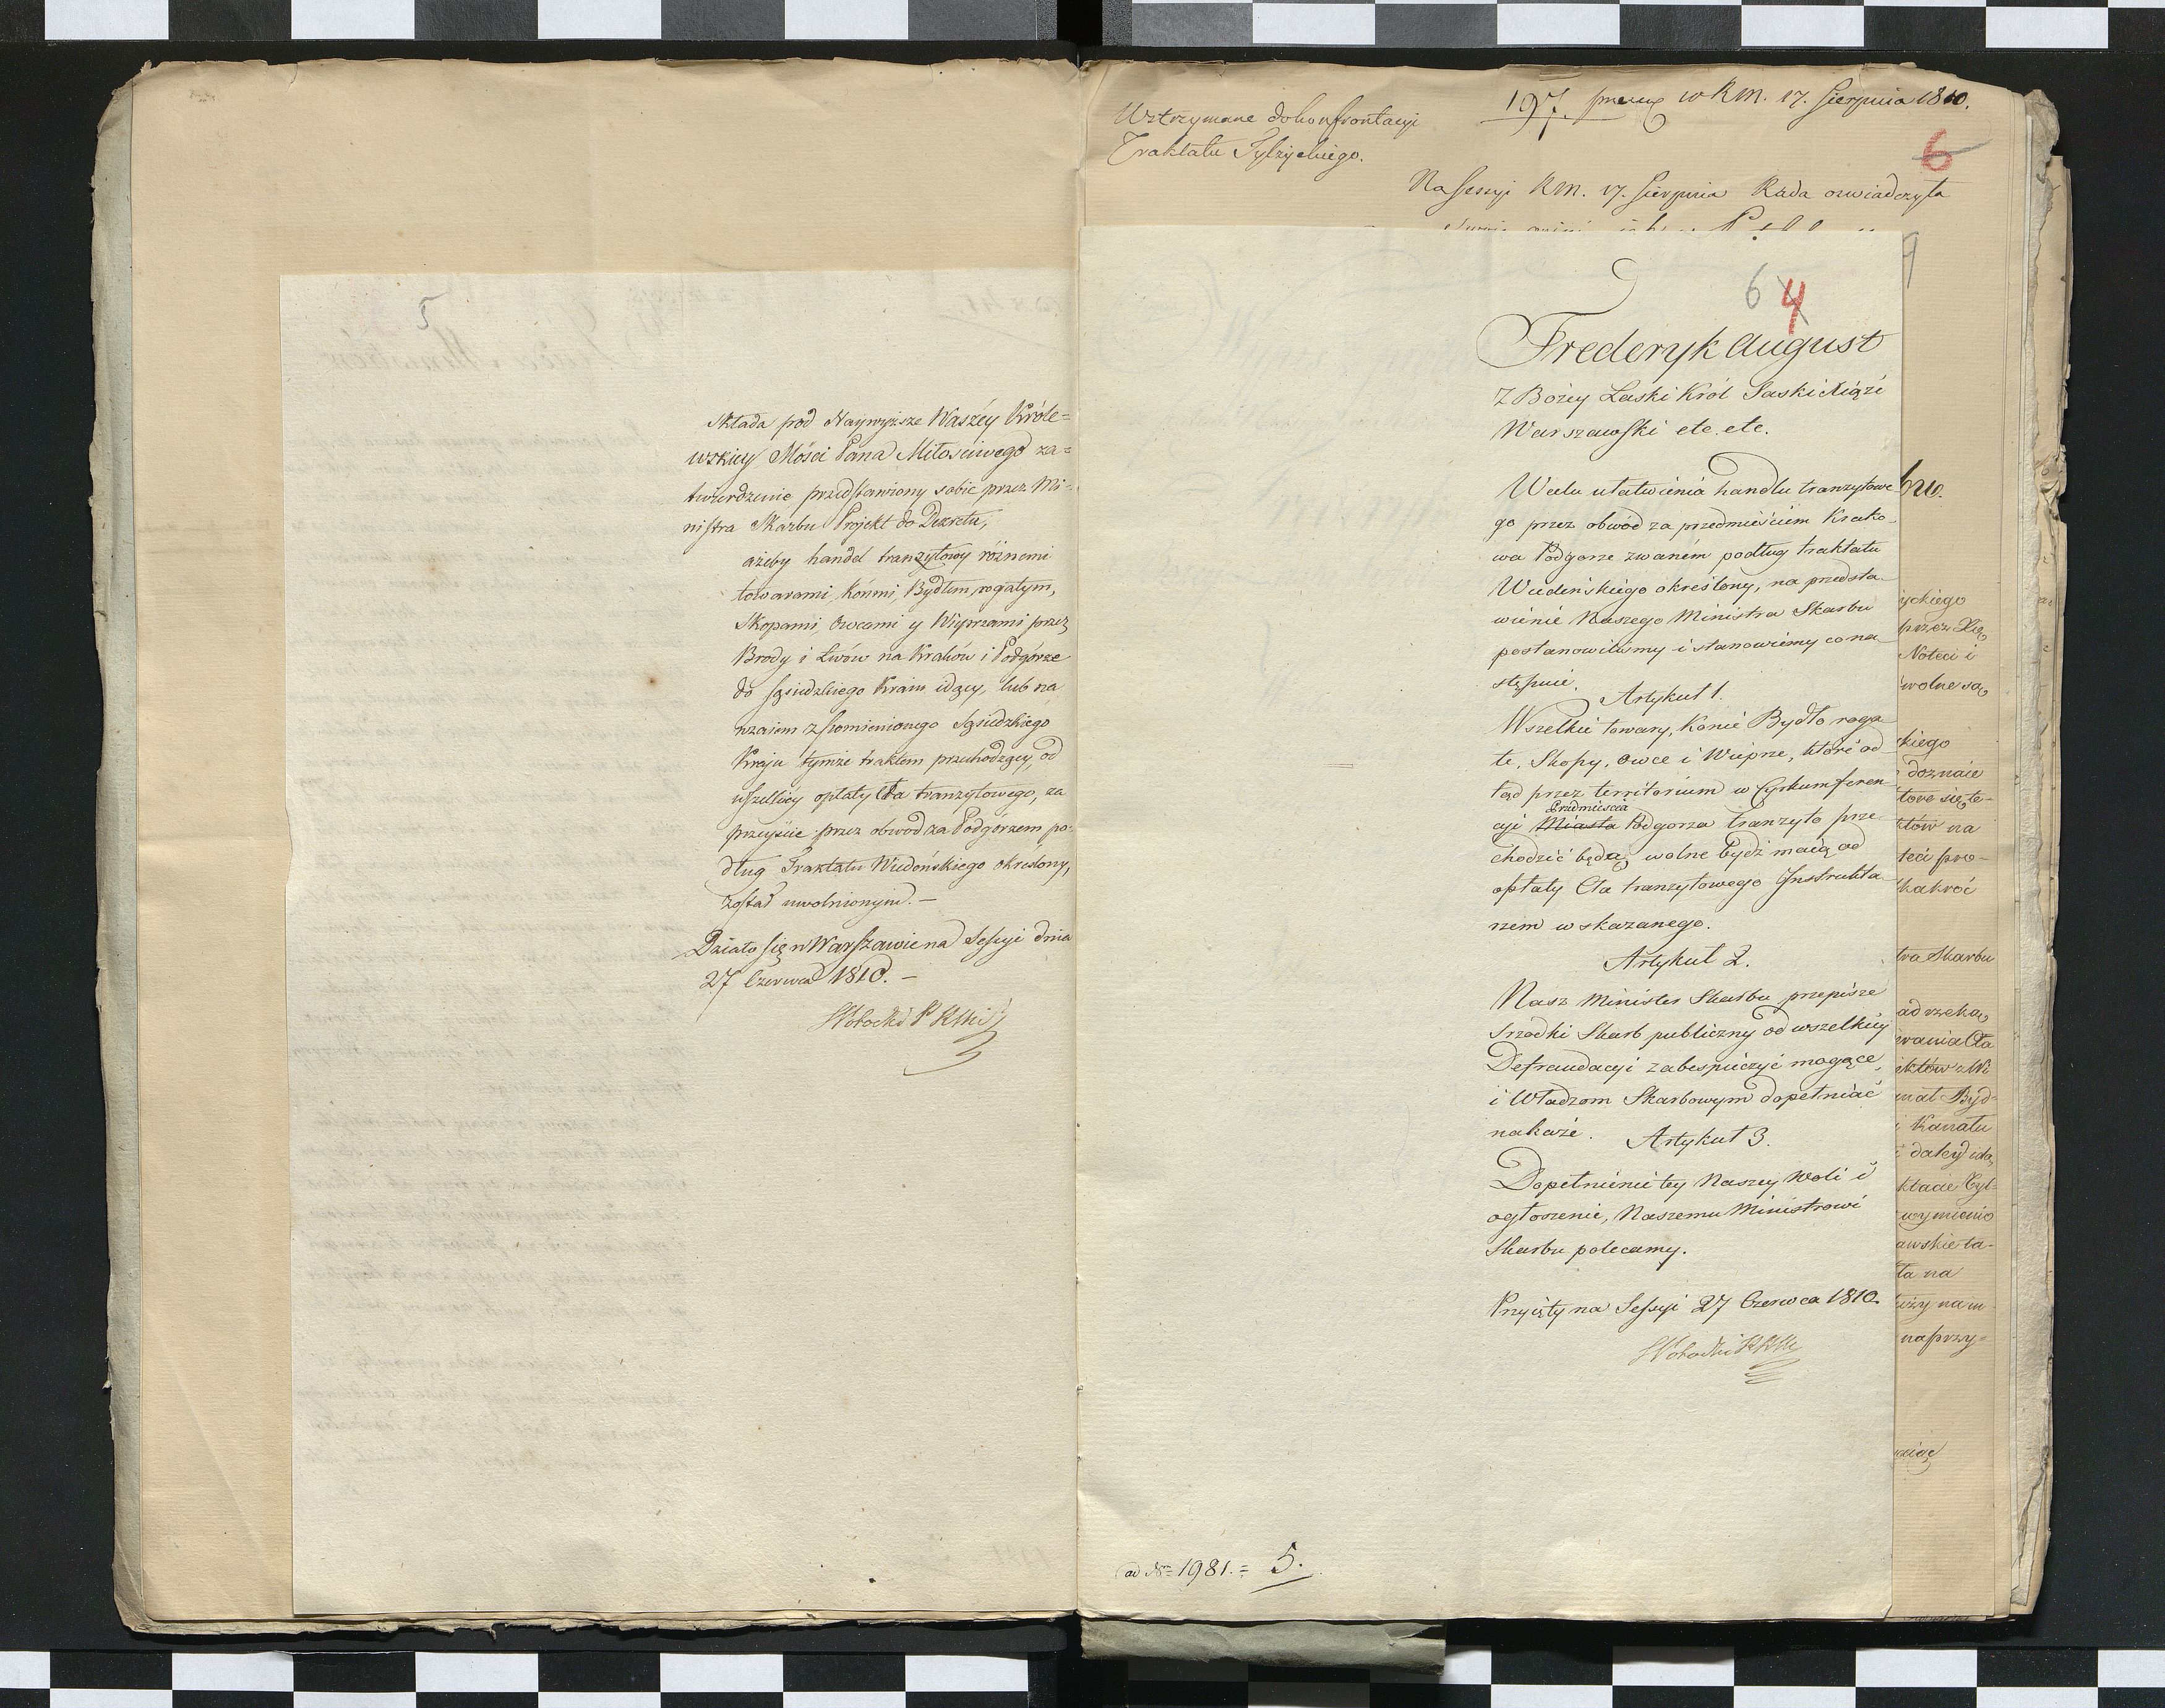 5
składa pod Naywyższe Waszéy Króle=
wskiey Mości Pana Miłosciwego za=
twierdzenie przedstawiony sobie przez Mi=
nistra Skarbu Projekt do Dekretu,
ażeby handel tranzytowy różnemi
towarami, Końmi, Bydłem rogatym,
Skopami, Owcami y Wieprzami przez
Brody i Lwów na Kraków i Podgórze
do sąsiedzkiego Kraiu idący, lub na
wzaiem z spomienionego Sąsiedzkiego
Kraju tymże traktem przechodzący, od
wszelkiéy opłaty Cła tranzytowego, za
przeyście przez obwód za Podgórzem po=
dług Traktatu Wiedeńskiego okreslony,
został uwolnionym. —
Działo się w Warszawie na Sessyi dnia
27 Czerwca 1810. —
Wstrzymane do konfrontacyi
Traktatu Tylżyckiego.
197. w RM. 17. Sierpnia 1810.
6
Na Sessyi RM. 17. Sierpnia Rada oswiadczyła
6 4
Frederyk August
Z Bożey Łaski Król Saski Xiążę
Warszawski etc. etc.
W celu ułatwienia handlu tranzytowe
go przez obwód za przedmieściem Krako-
wa Podgorze zwaném podług traktatu
Wiedeńskiego określony, na przedsta-
wienie Naszego Ministra Skarbu
postanowiliśmy i stanowiemy co na
stępuie.
Artykuł 1.
Wszelkie towary, Konie Bydło roga
te, Skopy, Owce i Wieprze, które od
tąd przez territorium w Cyrkumferen
Przedmieścia
cyi Miasta Podgorza tranzyto prze
chodzić będą, wolne bydź maią od
opłaty Cła tranzytowego Instrukta
rzem wskazanego.
Artykuł 2.
Nasz Minister Skarbu przepisze
srzodki Skarb publiczny od wszelkiey
Defraudacyi zabespieczyć mogące,
i Władzom Skarbowym dopełniać
nakaże.
Artykuł 3.
Dopełnienie tey Naszey Woli i
ogłoszenie, Naszemu Ministrowi
Skarbu polecamy.
Przyięty na Sessyi 27 Czerwca 1810.
ad Nr 1981. = 5.
yckiego
przez Xię
Noteci i
wolne są
kiego
doznaie
tore się te-
któw na
teci pro-
tra Skarbu
ad rzeką
wania Cła
nał Byd-
i Kanału
wymienio
awskie ta-
ta na
na przy=